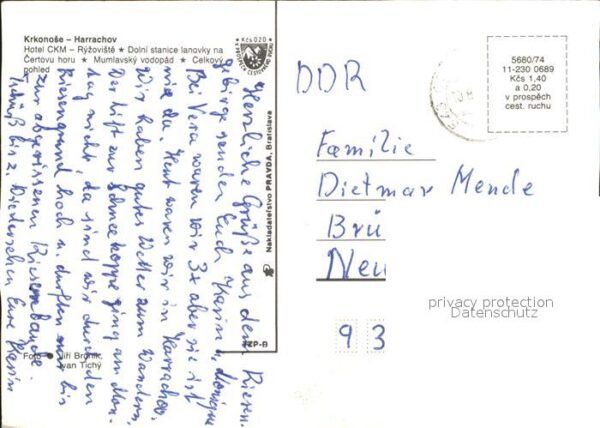 Krkonoše – Harrachov
Hotel CKM – Rýžoviště ★ Dolní stanice lanovky na
Čertovu horu ★ Mumlavský vodopád ★ Celkový
pohled
Kčs 0,20
Herzliche Grüße aus dem Riesen-
gebirge senden Euch Karin u. Monique
Bei Vera waren wir 3x aber sie ist
nie da. Heut waren wir in Harrachov.
Wir haben gutes Wetter zum Wandern.
Der Lift zur Schneekoppe ging am Mon-
tag nicht, da sind wir durch den
Riesengrund hoch u. durften nur bis
zur abgerissenen Riesenbaude.
Tschüß bis z. Wiedersehen Eure Karin
Foto Jiří Broník,
Ivan Tichý
Nakladatelstvo PRAVDA, Bratislava
TZP-B
5680/74
11-230 0689
Kčs 1,40
a 0,20
v prospěch
cest. ruchu
DDR
Familie
Dietmar Mende
Brü
Neu
privacy protection
Datenschutz
93